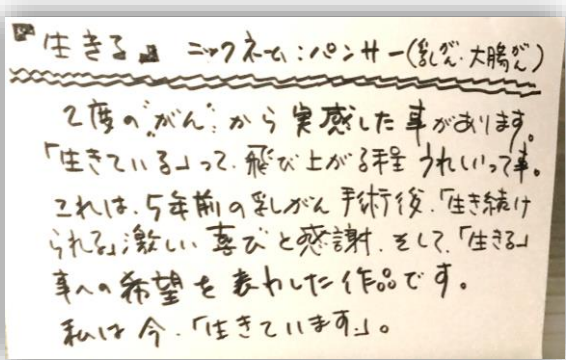 『生きる』 ニックネーム:パンサー(乳がん・大腸がん)
2度の"がん"から実感した事があります。
「生きている」って、飛び上がる程うれしいって事。
これは、5年前の乳がん手術後、「生き続け
られる」激しい喜びと感謝、そして、「生きる」
事への希望を表わした作品です。
私は今、「生きています」。